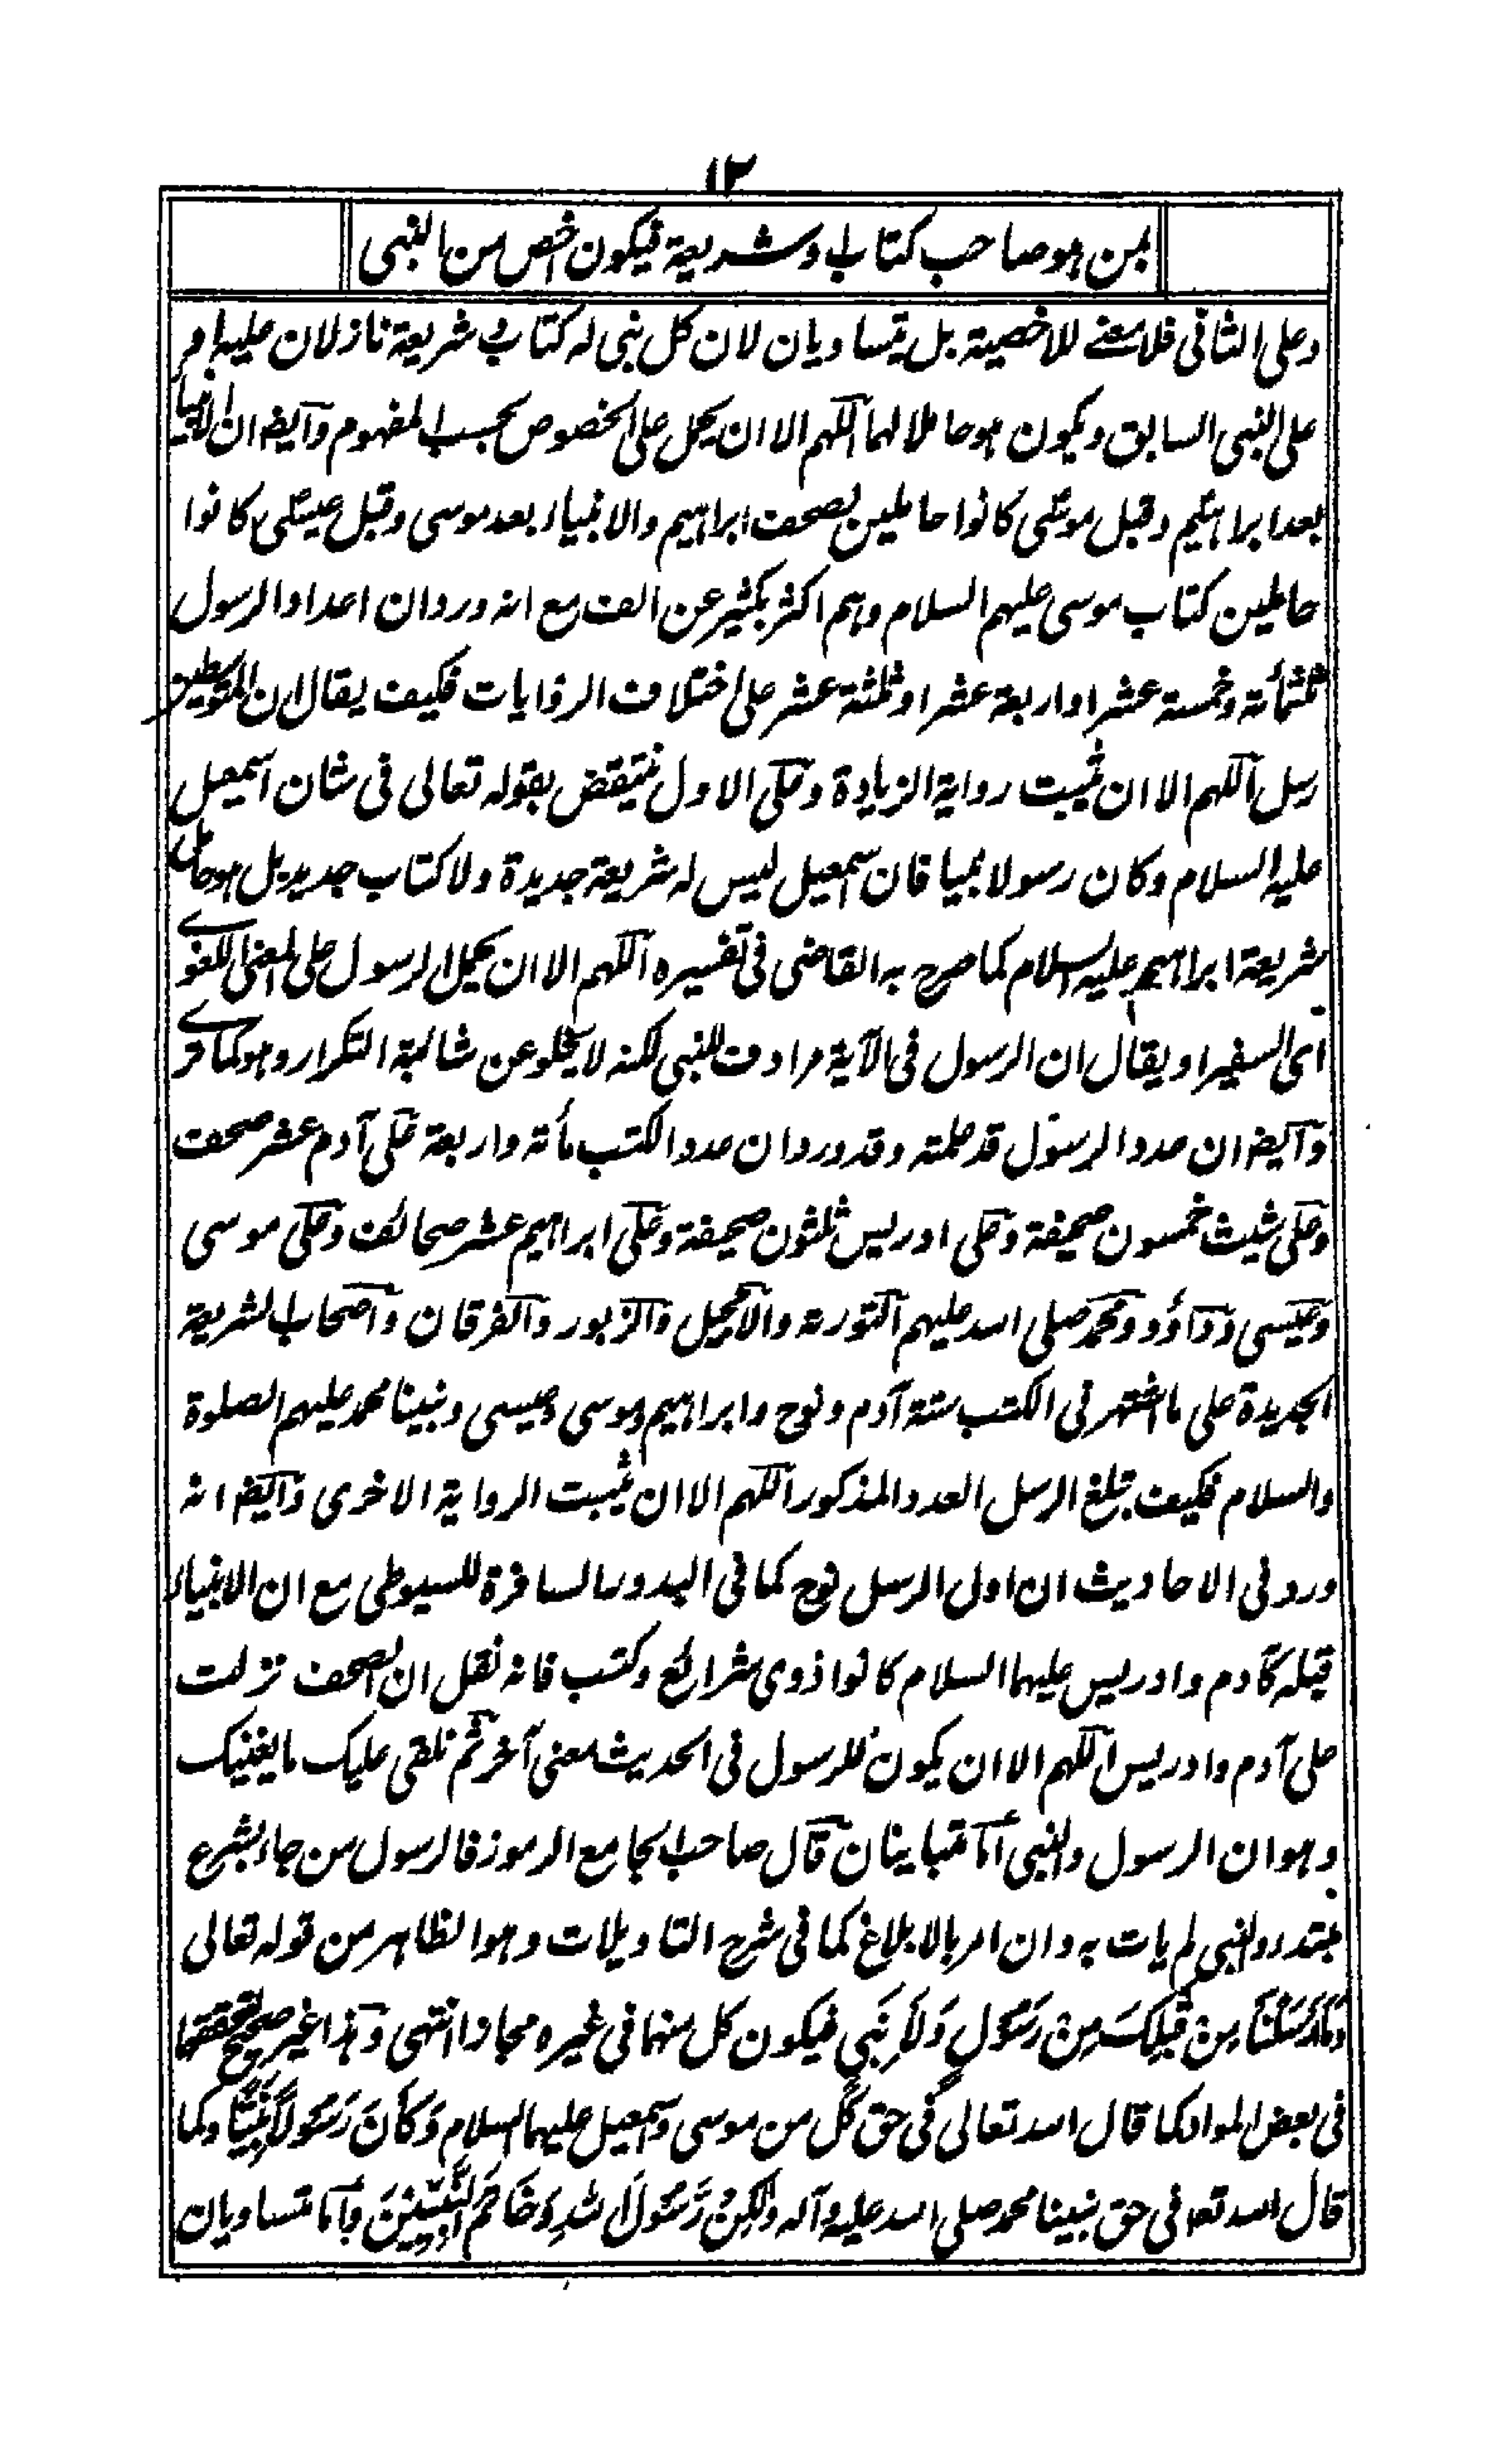 ١٢
بمن هو صاحب كتاب او شريعة فيكون اخص من النبى
وعلى الثانى فلا معنے للاخصية بل يتساويان لان كل نبى له كتاب و شريعة نازلان عليه ام
على النبى السابق ويكون هو حاملا لهما اللهم الا ان يحمل على الخصوص بحسب المفهوم وايضا ان الانبياء
بعد ابراهيم وقبل موسى كانوا حاملين لصحف ابراهيم والانبياء بعد موسى وقبل عيسى كانوا
حاملين كتاب موسى عليهم السلام وهم اكثر بكثير عن الف مع انه ورد ان اعداد الرسول
ثلثمائة وخمسة عشر او اربعة عشر او ثلثة عشر على اختلاف الروايات فكيف يقال ان المتوسطين
رسل اللهم الا ان يثبت رواية الزيادة وعلى الاول ينتقض بقوله تعالى فى شان اسمعيل
عليه السلام وكان رسولا نبيا فان اسمعيل ليس له شريعة جديدة ولا كتاب جديد بل هو حامل
شريعة ابراهيم عليه السلام كما صرح به القاضى فى تفسيره اللهم الا ان يحمل الرسول على المعنى اللغوے
اى السفير او يقال ان الرسول فى الآية مرادف للنبى لكنه لا يخلو عن شائبة التكرار وهو كما ترے
وايضا ان عدد الرسول قد علمته وقد ورد ان عدد الكتب مأته واربعة على آدم عشر صحف
وعلى شيث خمسون صحيفة وعلى ادريس ثلثون صحيفة وعلى ابراهيم عشر صحائف وعلى موسى
وعيسى وداؤد ومحمد صلى الله عليهم التورىة والانجيل والزبور والفرقان واصحاب الشريعة
الجديدة على ما اشتهر فى الكتب ستة آدم ونوح وابراهيم وموسى وعيسى ونبينا محمد عليهم الصلوة
والسلام فكيف تبلغ الرسل العدد المذكور اللهم الا ان يثبت الرواية الاخرى وايضا انه
ورد فى الاحاديث ان اول الرسل نوح كما فى البدور السافرة للسيوطى مع ان الانبياء
قبله كآدم وادريس عليهما السلام كانوا ذوى شرائع وكتب فانه نقل ان الصحف نزلت
على آدم وادريس اللهم الا ان يكون للرسول فى الحديث معنى آخر ثم نلقى عليك ما يغنيك
وهو ان الرسول والنبى اما متباينان قال صاحب الجامع الرموز فالرسول من جاء بشرع
مبتدء والنبى لم يات به وان امر بالابلاغ كما فى شرح التاويلات وهو الظاهر من قوله تعالى
وَمَا اَرْسَلْنَا مِنْ قَبْلِكَ مِنْ رَسُولٍ وَلَا نَبِيٍ فيكون كل منهما فى غيره مجازا انتهى وهذا غير صحيح لتحققهما
فى بعض المواد كما قال الله تعالى فى حق كل من موسى واسمعيل عليهما السلام وَكَانَ رَسُوْلًا نَبِيًّا وكما
قال الله تعا فى حق نبينا محمد صلى الله عليه وآله وَلٰكِنْ رَّسُوْلَ اللهِ وَخَاتَمَ النَّبِيّٖنَ واما متساويان